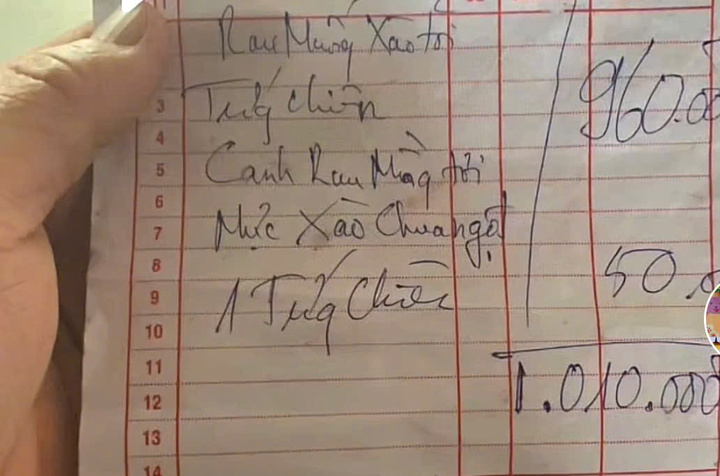 Rau Muống Xào tỏi
3 Trứng chiên 960.00
4
5 Canh Rau Mồng tơi
6
7 Mực Xào Chua ngọt
8
9 1 Trứng Chiên 50.
10
11
12 1.010.000
13
14